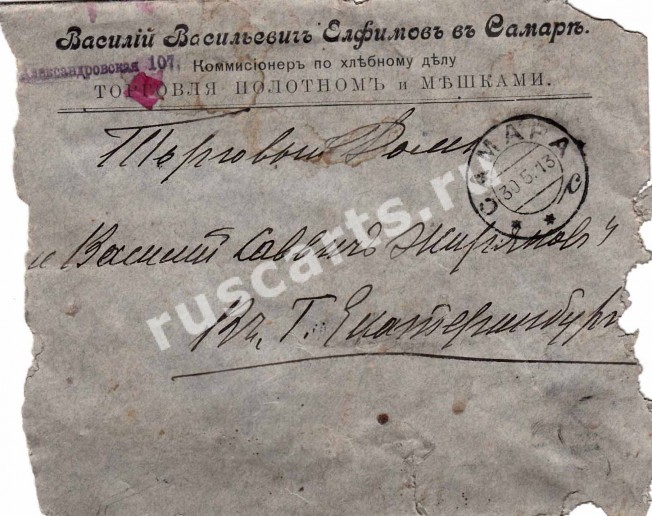 Василій Васильевичъ Елфимовъ въ Самарѣ.
Александровская 107.
Коммисіонеръ по хлѣбному дѣлу
ТОРГОВЛЯ ПОЛОТНОМЪ и МѢШКАМИ.
САМАРА
30.5.13
С
Торговый Домъ
Василій Саввичъ
Въ Г. Екатеринбург
ruscarts.ru